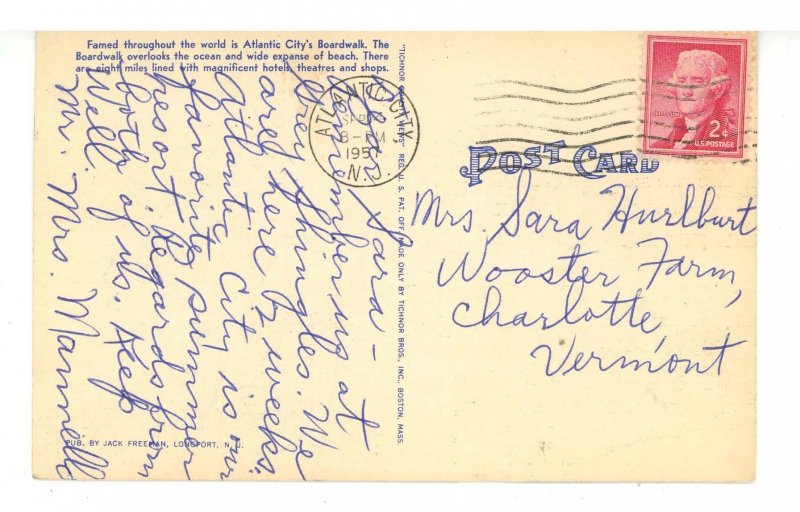 Famed throughout the world is Atlantic City's Boardwalk. The
Boardwalk overlooks the ocean and wide expanse of beach. There
are eight miles lined with magnificent hotels, theatres and shops.
Dear Sara –
Remembering at
Grey Shingles. We
are here 2 weeks.
Atlantic City is our
favorite summer
resort. Regards from
both of us. Keep
Well. 
Mr. Mrs. Mannello
PUB. BY JACK FREEMAN, LONGPORT, N. J.
"TICHNOR QUALITY VIEWS" REG. U. S. PAT. OFF. MADE ONLY BY TICHNOR BROS., INC., BOSTON, MASS.
ATLANTIC CITY
SEP
8-PM
1957
N.J.
2¢
U.S. POSTAGE
POST CARD
Mrs. Sara Hurlburt
Wooster Farm,
Charlotte,
Vermont